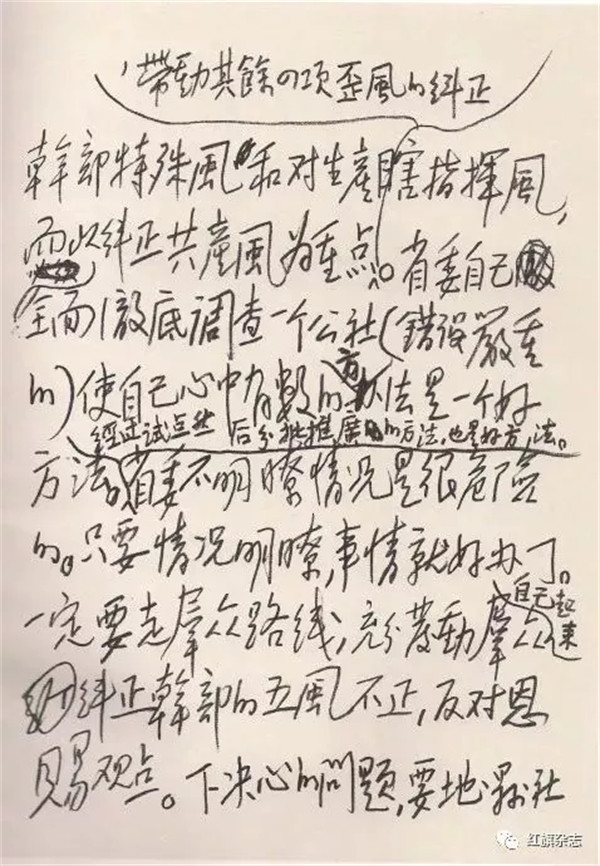 ,帶動其餘四项歪風的糾正
幹部特殊風和对生產瞎指揮風,
而以糾正共產風為重点。省委自己
全面徹底調查一个公社(錯誤嚴重
的)使自己心中有数的方法是一个好
經过试点然后分批推廣的方法,也是好方法。
方法。省委不明瞭情况是很危险
的。只要情况明瞭,事情就好办了。
一定要走羣众路线,充分發動羣众
自己起来
糾正幹部的五風不正,反对恩
賜观点。下决心的问题,要地、縣、社
红旗杂志